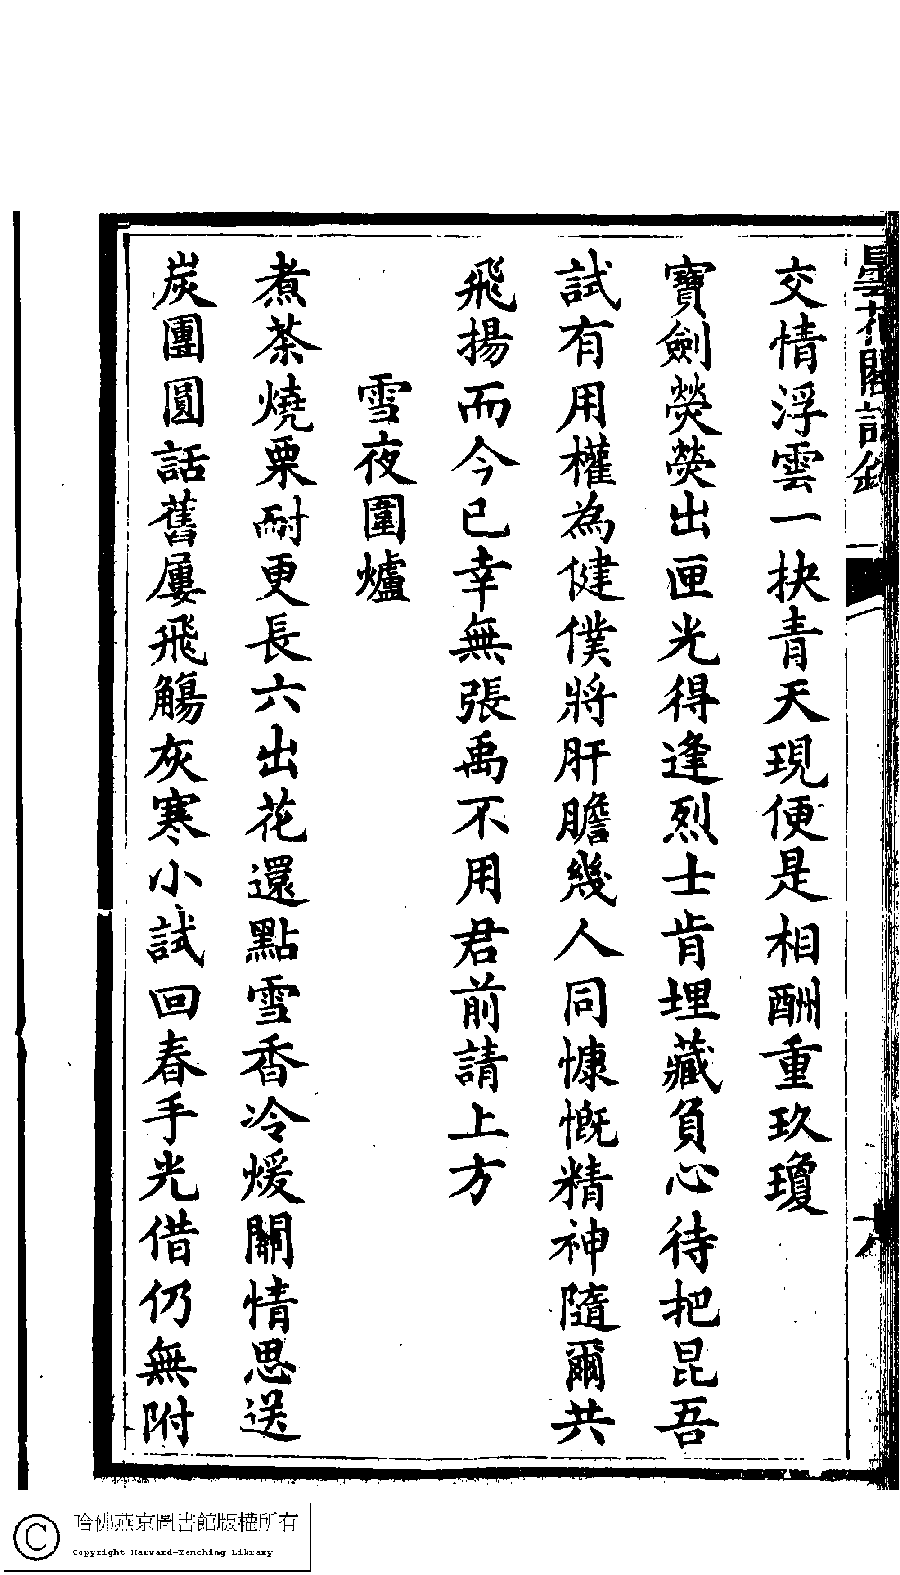 曇花閣詩鈔
交情浮雲一抉青天現便是相酬重玖瓊
寶劍熒熒出匣光得逢烈士肯埋藏負心待把昆吾
試有用權為健僕將肝膽幾人同慷慨精神隨爾共
飛揚而今已幸無張禹不用君前請上方
雪夜圍爐
煮茶燒栗耐更長六出花還點雪香冷煖關情思送
炭團圓話舊屢飛觴灰寒小試回春手光借仍無附
哈佛燕京圖書館版權所有
Copyright Harvard-Yenching Library